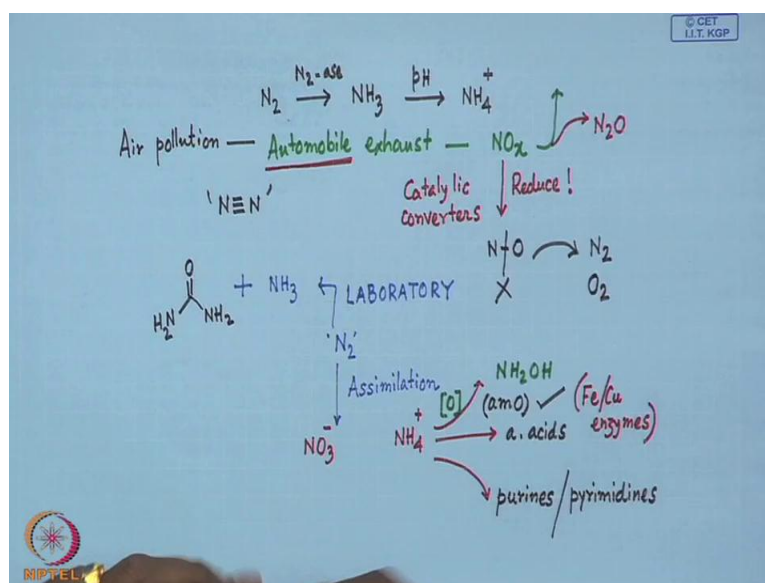 © CET
I.I.T. KGP
N₂ —N₂-ase→ NH₃ —pH→ NH₄⁺
Air pollution — Automobile exhaust — NOx → N₂O
'N≡N'
Catalytic converters
Reduce!
N-O → N₂
X O₂
O
H₂N NH₂ + NH₃ ← LABORATORY
'N₂'
Assimilation
NO₃⁻ NH₄⁺
[O] NH₂OH
(amO) ✓ (Fe/Cu enzymes)
a. acids
purines/pyrimidines
NPTEL